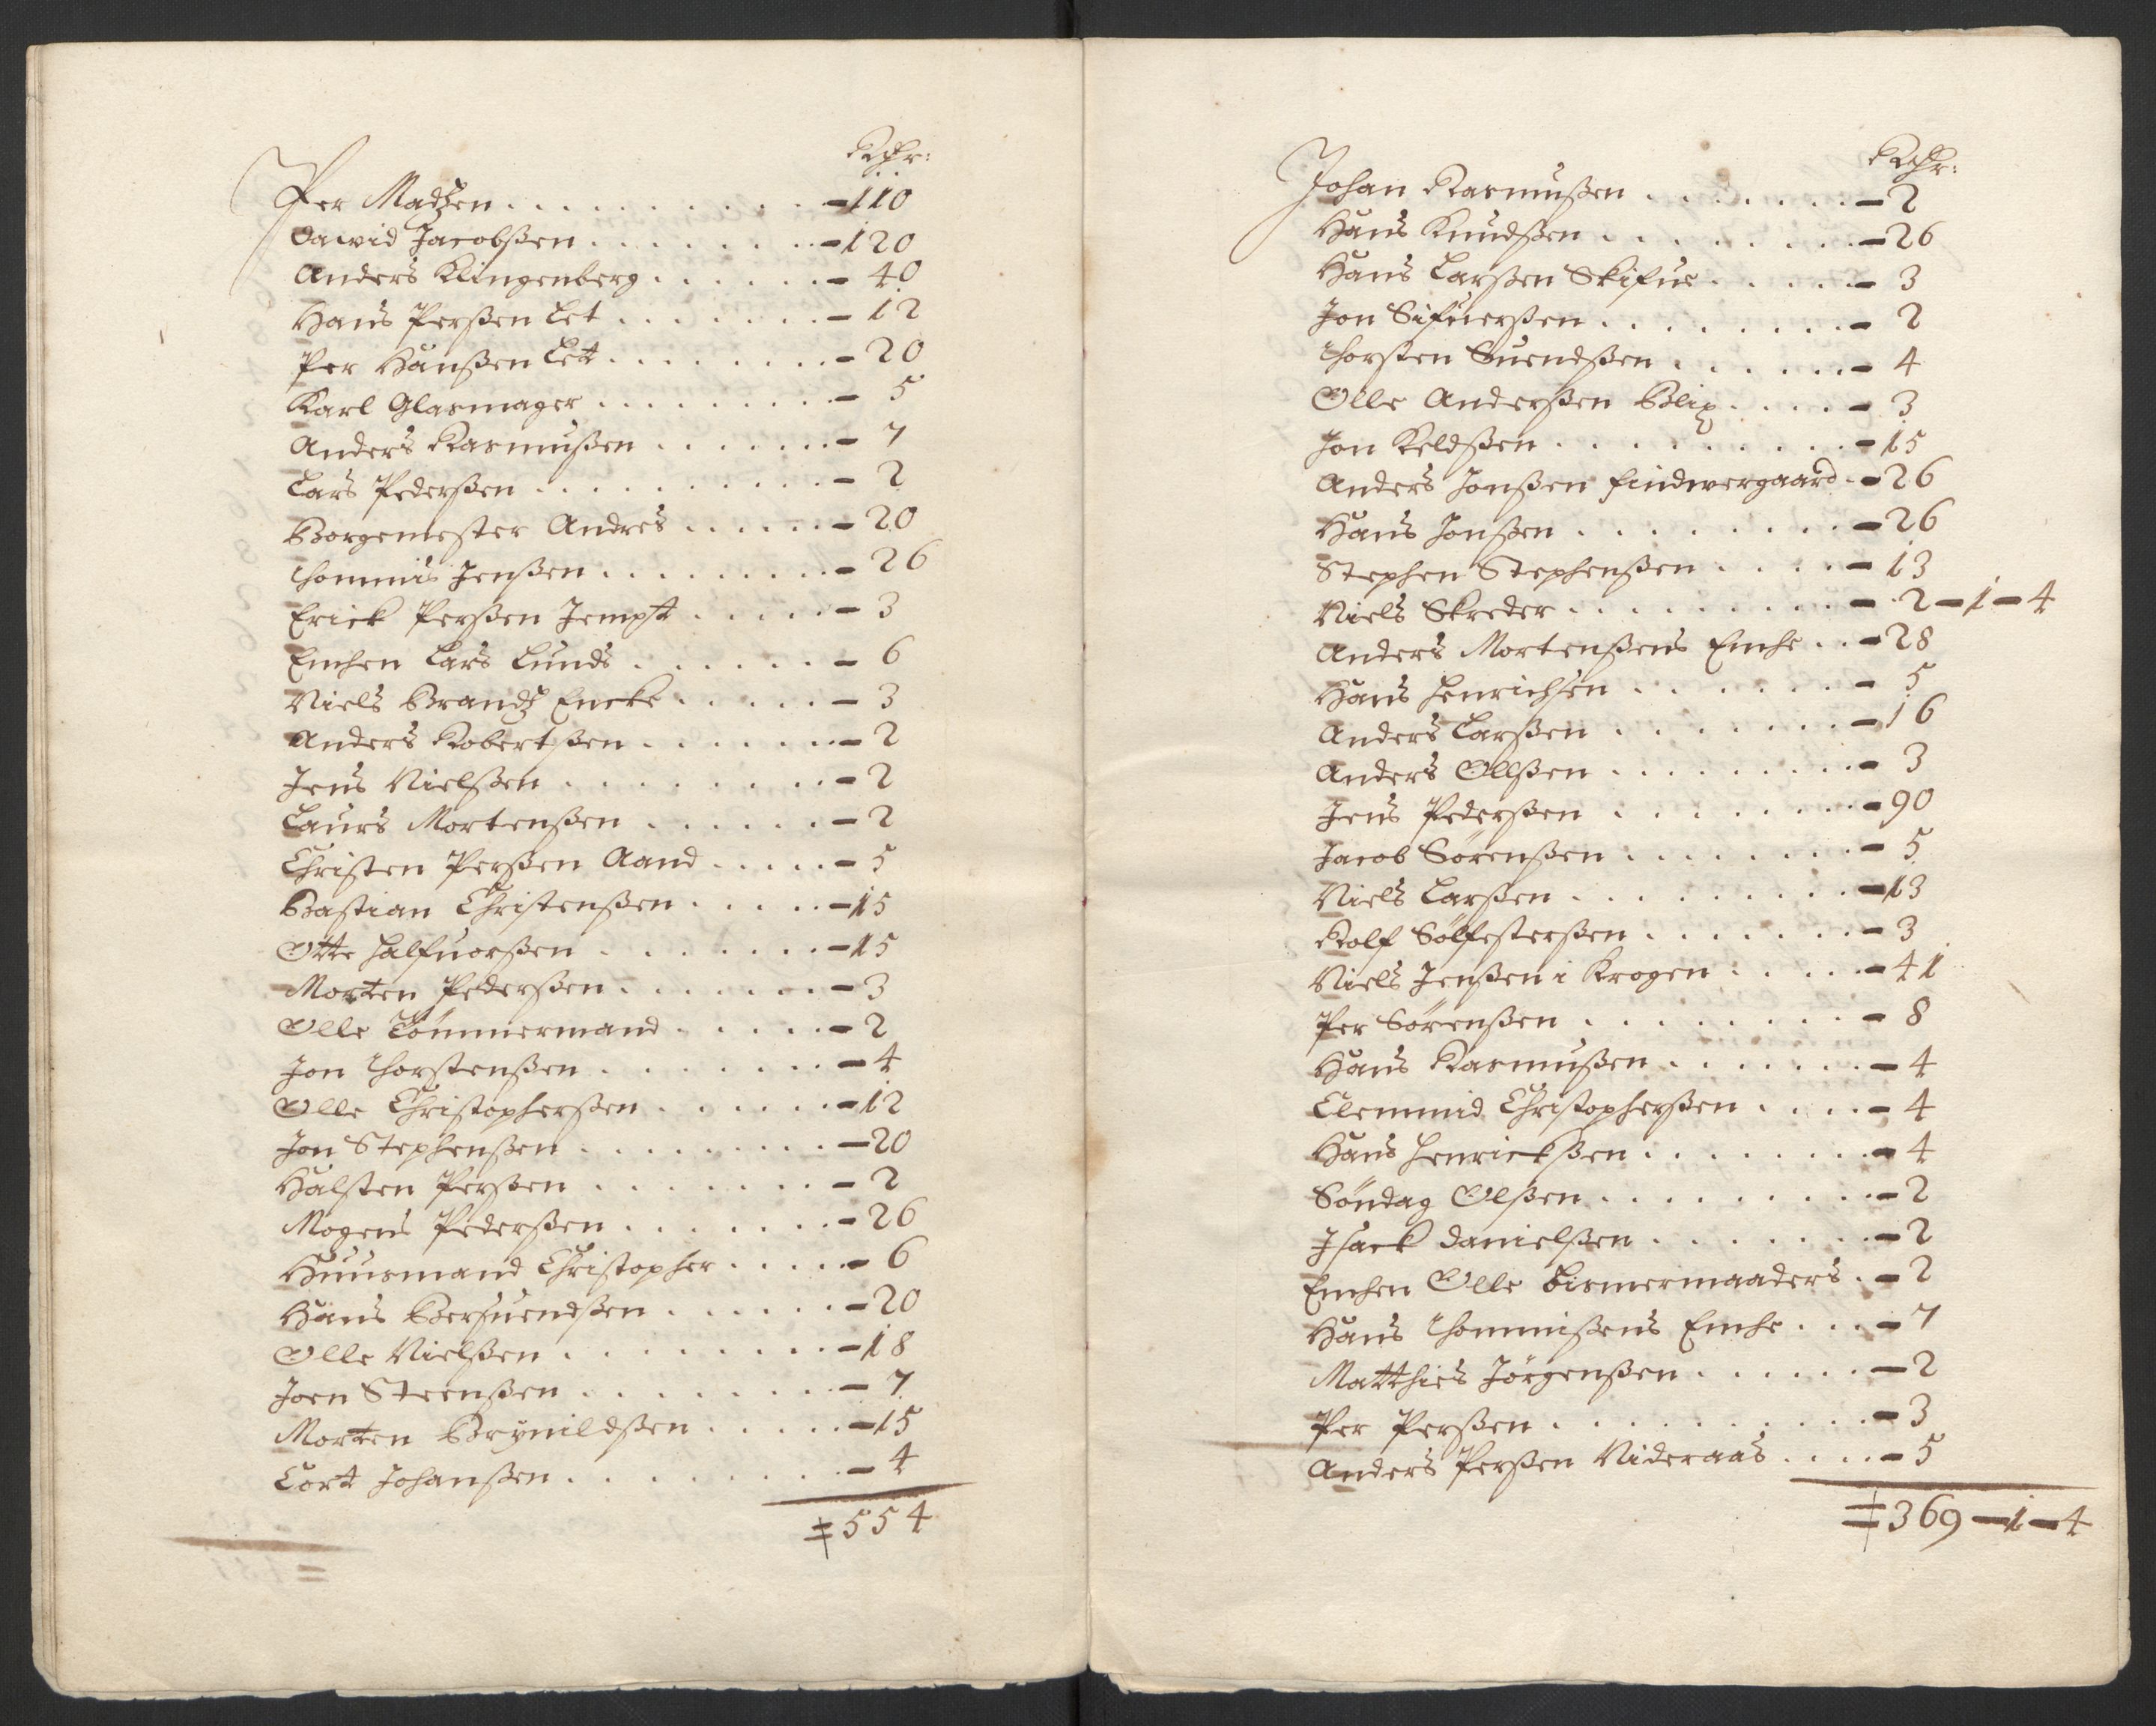 Rdhr:
Per Madtzen . . . . . . . . . . - 110
Dawid Jacobßen . . . . . . . - 120
Anders Klingenberg . . . . . . - 40
Hans Perßen Let . . . . . . . - 12
Per Hanßen Let . . . . . . . . - 20
Karl Glasmager . . . . . . . . - 5
Anders Rasmußen . . . . . . - 7
Lars Pederßen . . . . . . . . . - 2
Borgemester Andres . . . . . - 20
Thommis Jenßen . . . . . . . - 26
Erick Perßen Jempt . . . . . - 3
Enchen Lars Lunds . . . . . . - 6
Niels Brandtz Encke . . . . . - 3
Anders Robertßen . . . . . . - 2
Jens Nielßen . . . . . . . . . - 2
Laurs Mortenßen . . . . . . - 2
Christen Perßen Aand . . . . - 5
Bastian Christenßen . . . . . - 15
Otte Halfuorßen . . . . . . . - 15
Morten Pederßen . . . . . . . - 3
Olle Tömmermand . . . . . - 2
Jon Thorstenßen . . . . . . . - 4
Olle Christopherßen . . . . . - 12
Jon Stephenßen . . . . . . . . - 20
Halsten Perßen . . . . . . . . - 2
Mogens Pederßen . . . . . . . - 26
Huusmand Christopher . . . . - 6
Hans Bersuendßen . . . . . . - 20
Olle Nielßen . . . . . . . . . - 18
Joen Steenßen . . . . . . . . - 7
Morten Brynildßen . . . . . - 15
Cort Johanßen . . . . . . . . - 4
= 554
Rdhr:
Johan Rasmußen . . . . . . . - 2
Hans Knudßen . . . . . . . . - 26
Hans Larßen Skifue . . . . . - 3
Jon Sifuerßen . . . . . . . . - 2
Thorsten Suendßen . . . . . . - 4
Olle Anderßen Blix . . . . - 3
Jon Keldßen . . . . . . . . . - 15
Anders Jonßen Findwergaard - 26
Hans Jonßen . . . . . . . . - 26
Stephen Stephenßen . . . . - 13
Niels Skreder . . . . . . . . - 2 - 1 - 4
Anders Mortenßens Enche . . - 28
Hans Henrichsen . . . . . . - 5
Anders Larßen . . . . . . . - 16
Anders Ollßen . . . . . . . . - 3
Jens Pederßen . . . . . . . - 90
Jacob Sörenßen . . . . . . . - 5
Niels Larßen . . . . . . . . - 13
Rolf Sölfesterßen . . . . . . - 3
Niels Jenßen i Krogen . . . . - 41
Per Sörenßen . . . . . . . . - 8
Hans Rasmußen . . . . . . . - 4
Clemmid Christopherßen . . . . - 4
Hans Henrickßen . . . . . . . - 4
Söndag Olßen . . . . . . . . - 2
Jsack Danielßen . . . . . . . - 2
Enchen Olle Bismermaaders . - 2
Hans Thommißens Enche . . . - 7
Matthies Jörgenßen . . . . . - 2
Per Perßen . . . . . . . . . - 3
Anders Perßen Videraas . . . . - 5
= 369 - 1 - 4